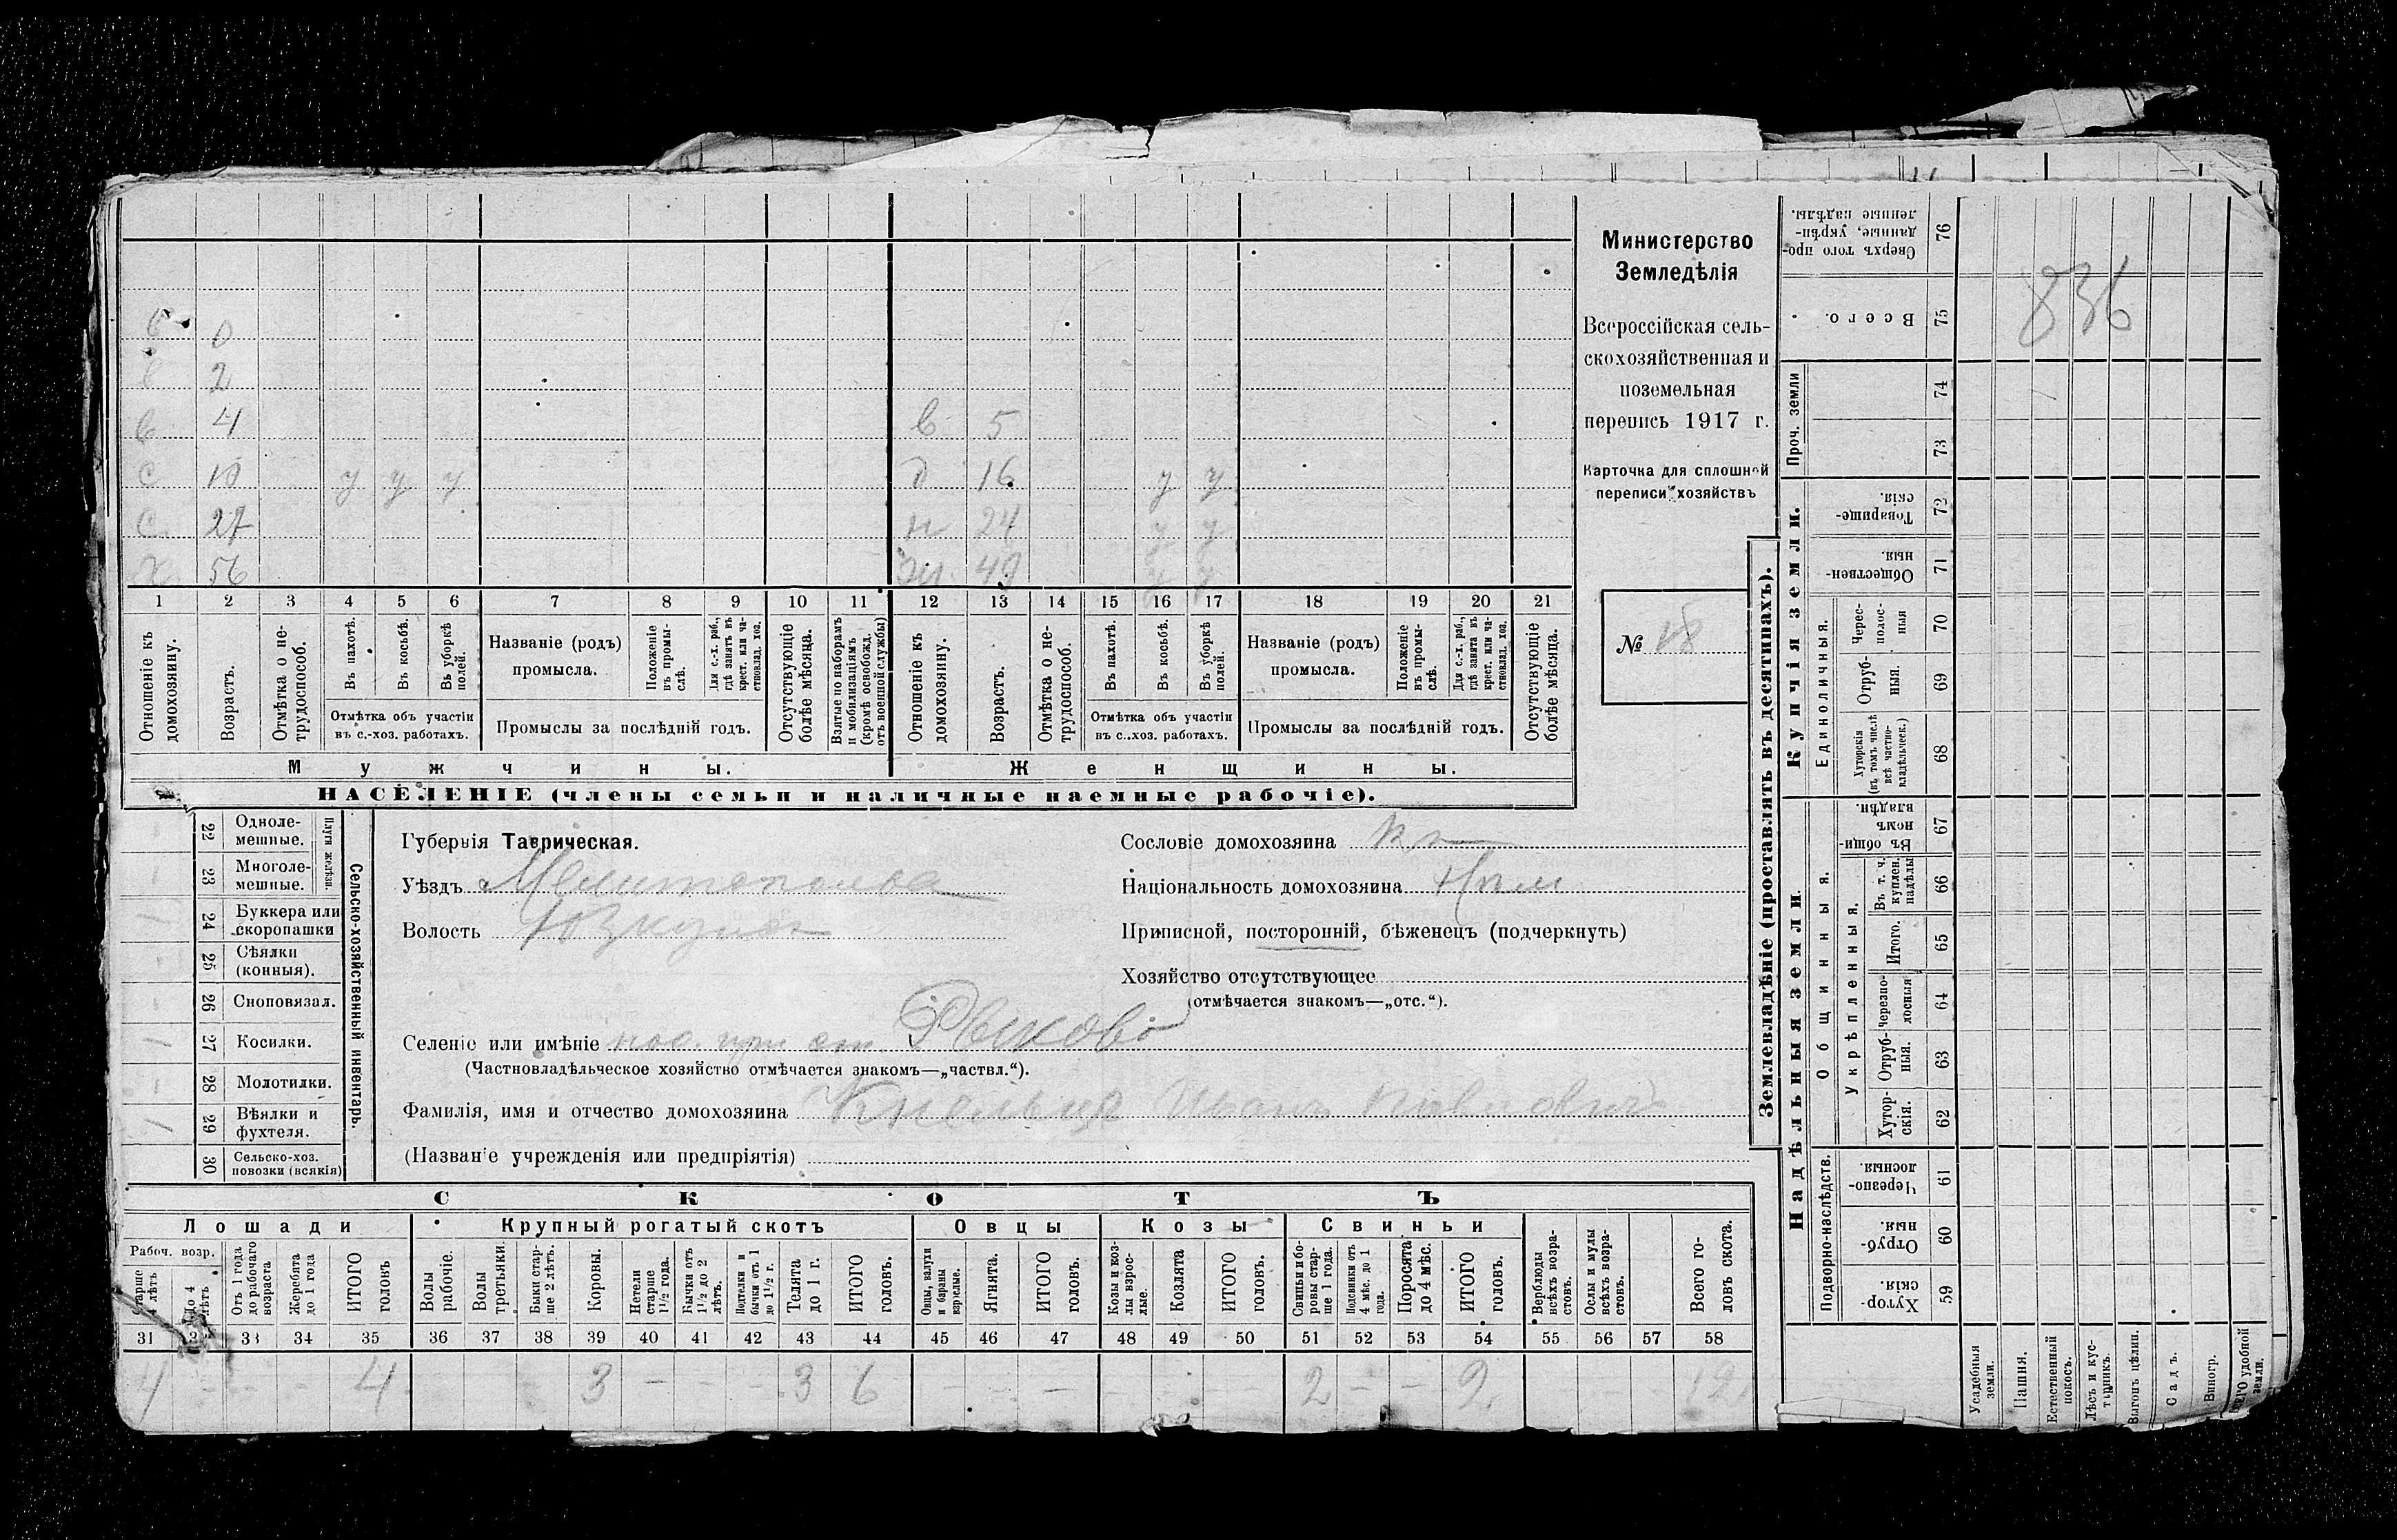 Министерство
Земледѣлія
Всероссійская сель-
скохозяйственная и
поземельная
перепись 1917 г.
Карточка для сплошной
переписи хозяйствъ
№ 18
836
в 0
2
в 4 в 5
с 10 у у у д 16 у у
с 27 н 24 у у
х 56 ж 49 у у
1 2 3 4 5 6 7 8 9 10 11 12 13 14 15 16 17 18 19 20 21
Отношеніе къ домохозяину.
Возрастъ.
Отмѣтка о не-трудоспособ.
Въ пахотѣ.
Въ косьбѣ.
Въ уборкѣ полей.
Отмѣтка объ участіи
въ с.-хоз. работахъ.
Названіе (родъ)
промысла.
Положеніе въ промы-слѣ.
Для с.-х. раб., гдѣ занятъ въ крест. или ча-стновлад. хоз.
Промыслы за послѣдній годъ.
Отсутствующіе болѣе мѣсяца.
Взятые по наборамъ и мобилизаціямъ (кромѣ освобожд. отъ военной службы)
Отношеніе къ домохозяину.
Возрастъ.
Отмѣтка о не-трудоспособ.
Въ пахотѣ.
Въ косьбѣ.
Въ уборкѣ полей.
Отмѣтка объ участіи
въ с.-хоз. работахъ.
Названіе (родъ)
промысла.
Положеніе въ промы-слѣ.
Для с.-х. раб., гдѣ занята въ крест. или ча-стновлад. хоз.
Промыслы за послѣдній годъ.
Отсутствующіе болѣе мѣсяца.
Мужчины. Женщины.
НАСЕЛЕНІЕ (члены семьи и наличные наемные рабочіе).
Сельско-хозяйственный инвентарь.
Плуги желѣзн.
22 Одноле-мешные.
23 Многоле-мешные.
24 Буккера или скоропашки
25 Сѣялки (конныя).
26 Сноповязал.
27 Косилки.
28 Молотилки.
29 Вѣялки и фухтеля.
30 Сельско-хоз. повозки (всякія)
Губернія Таврическая.
Уѣздъ
Волость
Селеніе или имѣніе пос. при ст. Рыково
(Частновладѣльческое хозяйство отмѣчается знакомъ—„частвл.“).
Фамилія, имя и отчество домохозяина Иванъ Павловичъ
(Названіе учрежденія или предпріятія)
Сословіе домохозяина кр
Національность домохозяина
Приписной, посторонній, бѣженецъ (подчеркнуть)
Хозяйство отсутствующее
(отмѣчается знакомъ—„отс.“).
СКОТЪ
Лошади Крупный рогатый скотъ Овцы Козы Свиньи
Рабоч. возр.
Старше 4 лѣтъ
До 4 лѣтъ
Отъ 1 года до рабочаго возраста
Жеребята до 1 года
ИТОГО головъ
Волы рабочіе.
Волы третьяки.
Быки стар-ше 2 лѣтъ.
Коровы.
Нетели старше 1½ года.
Бычки отъ 1½ до 2 лѣтъ.
Подтелки и бычки отъ 1 до 1½ г.
Телята до 1 г.
ИТОГО головъ.
Овцы, валухи и бараны взрослые.
Ягнята.
ИТОГО головъ.
Козы и коз-лы взрос-лые.
Козлята
ИТОГО головъ.
Свиньи и бо-ровы стар-ше 1 года.
Подсвинки отъ 4 мѣс. до 1 года.
Поросята до 4 мѣс.
ИТОГО головъ.
Верблюды всѣхъ возра-стовъ.
Ослы и мулы всѣхъ возра-стовъ.
Всего го-ловъ скота.
31 32 33 34 35 36 37 38 39 40 41 42 43 44 45 46 47 48 49 50 51 52 53 54 55 56 57 58
4 - - 4 3 - - - 3 6 - - - - - - 2 - - 2 - - 12
Землевладѣніе (проставлять въ десятинахъ).
Надѣльныя земли.
Купчія земли.
Проч. земли
Подворно-наслѣдств.
Общинныя.
Укрѣпленныя.
Единоличныя.
Хутор-скія. 59
Отруб-ныя. 60
Черезпо-лосныя 61
Хутор-скія. 62
Отруб-ныя. 63
Черезпо-лосныя 64
Итого. 65
Въ т. ч. куплен. надѣлы 66
Въ общин-номъ владѣн. 67
Хуторскія (въ томъ числѣ всѣ частно-владѣльческ.) 68
Отруб-ныя. 69
Черес-полос-ныя 70
Обществен-ныя. 71
Товарище-скія. 72
73
74
Всего. 75
Сверхъ того про-данные, укрѣп-ленные надѣлы. 76
Усадебныя земли.
Пашня.
Естественный покосъ.
Лѣсъ и кус-тарникъ.
Выгонъ цѣлин.
Садъ.
Виногр.
удобной земли.